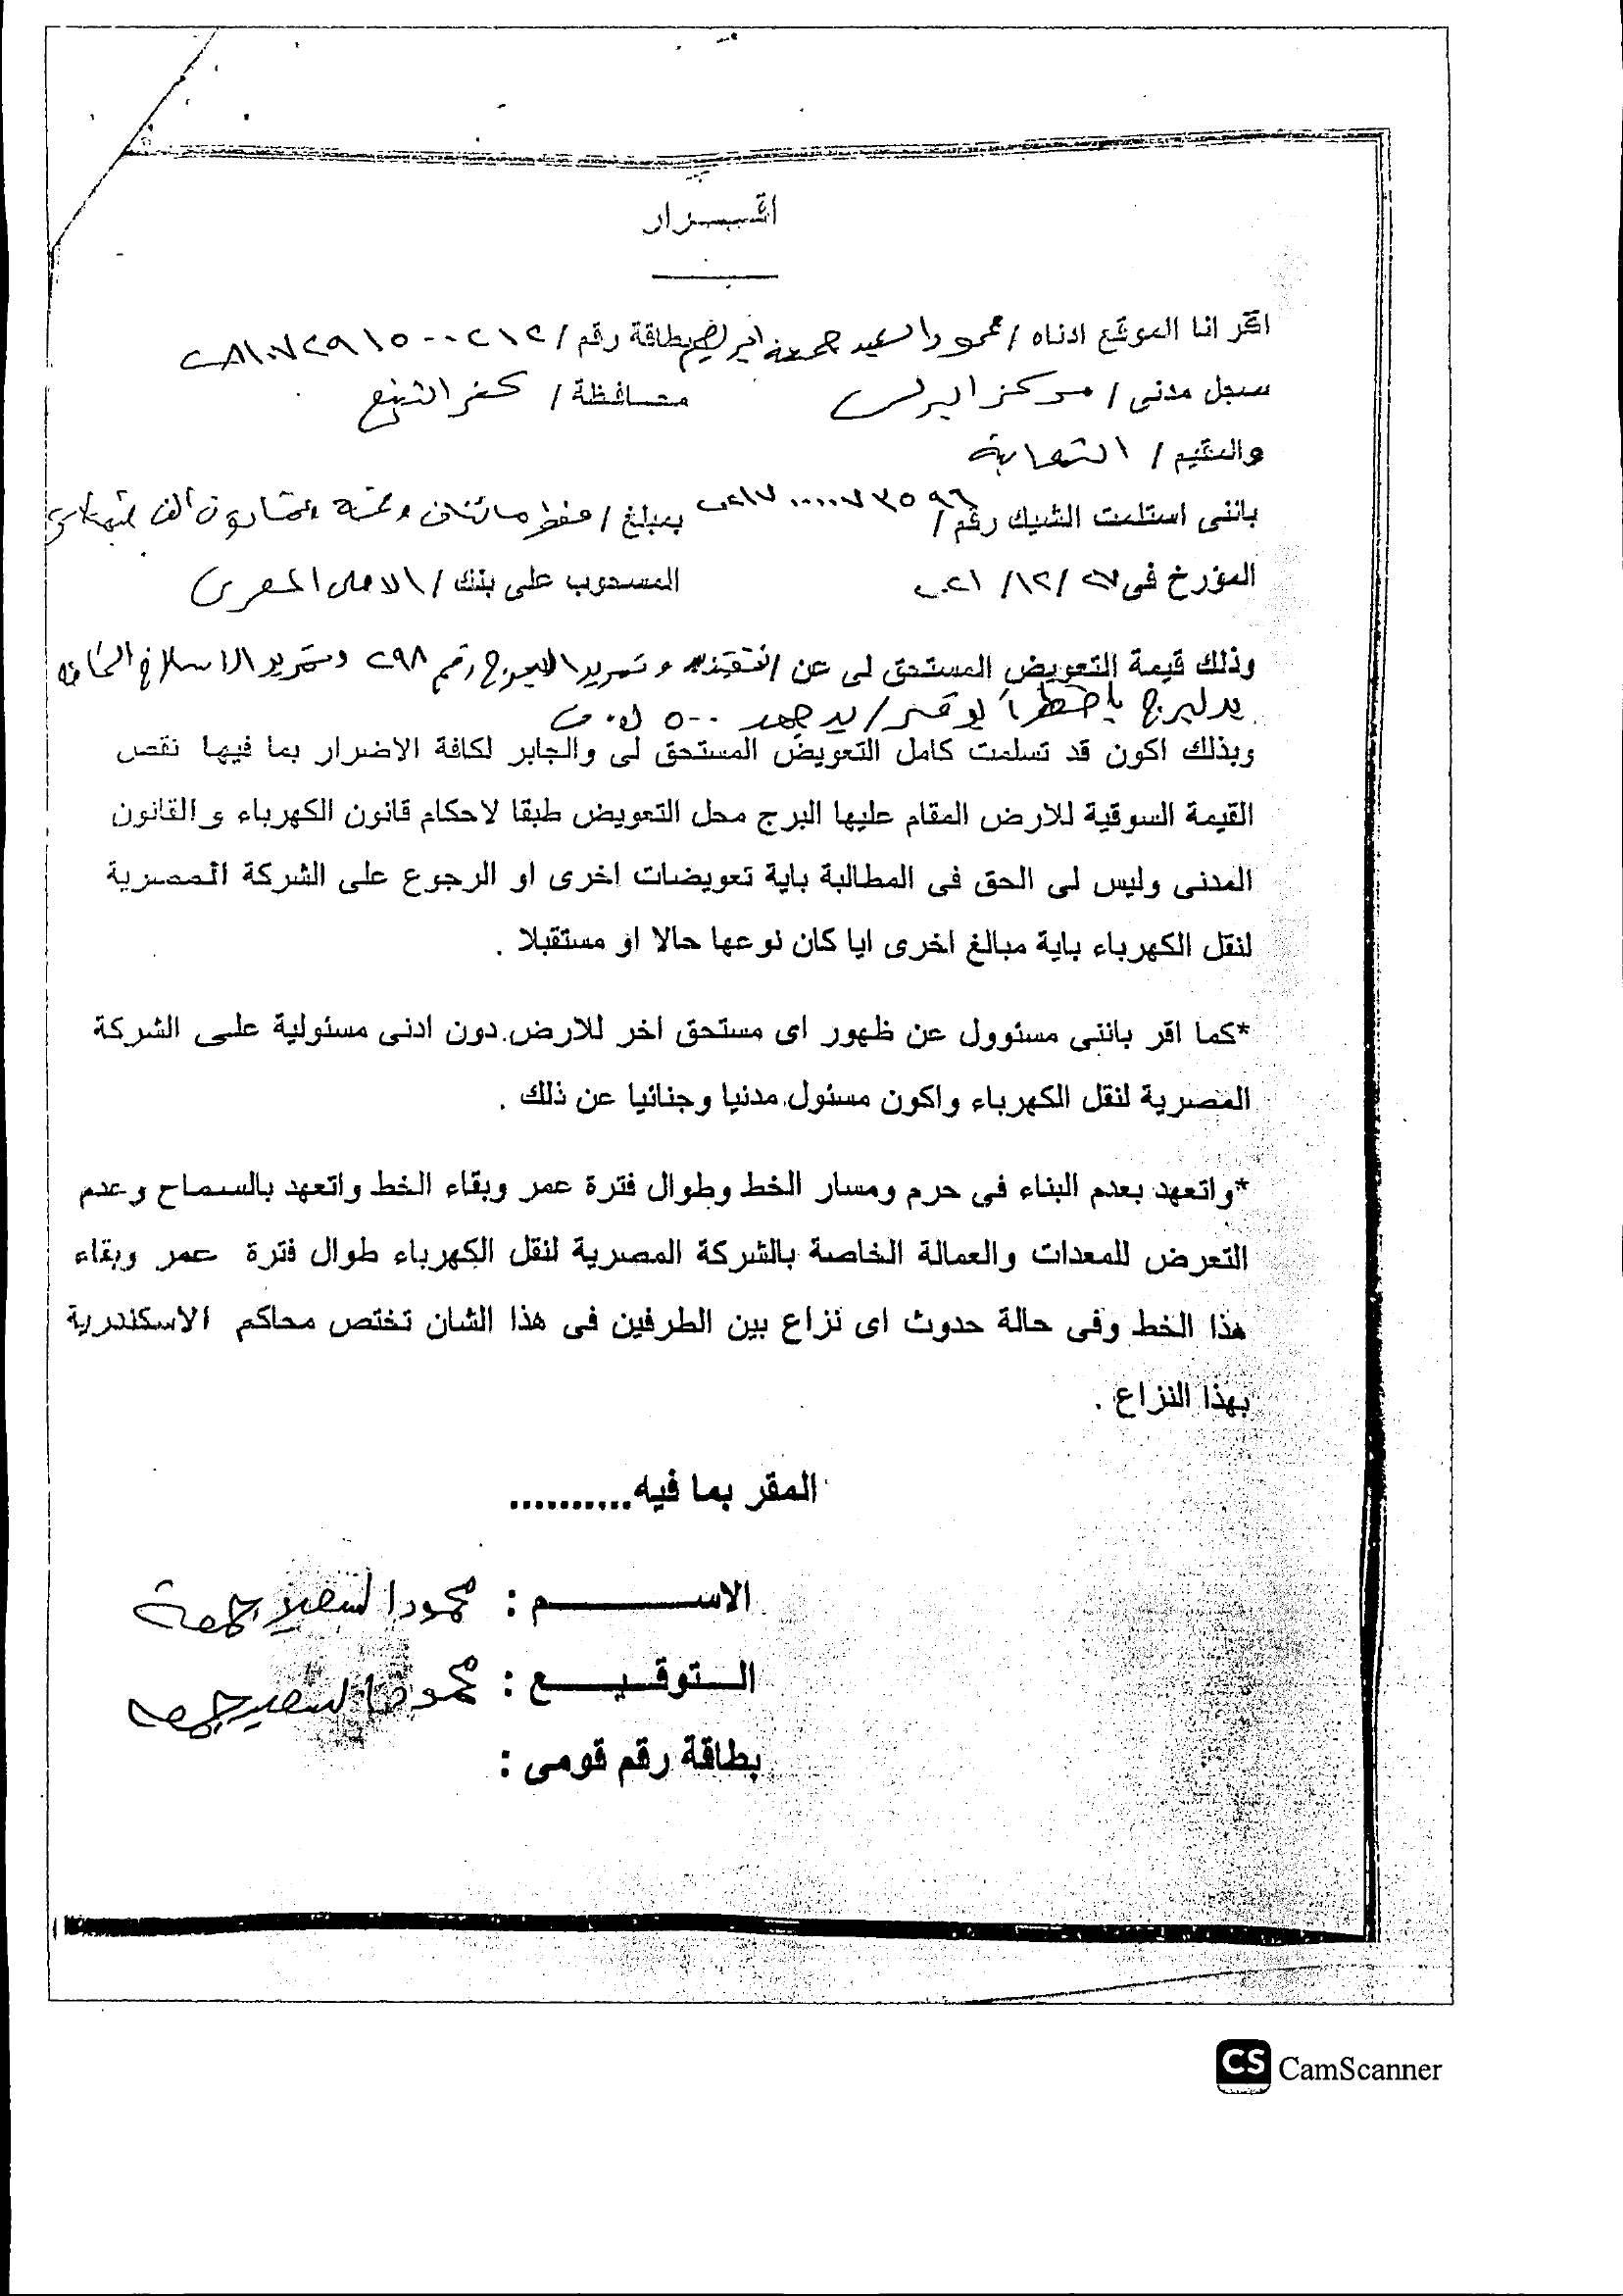 اقـــرار
اقر انا الموقع ادناه / محمود السعيد جمعة ابراهيم بطاقة رقم / ٢٨١٠٧٢٩١٥٠٠٢١٢
سجل مدنى / مركز البرلس محافظة / كفر الشيخ
والمقيم / الشهابية
باننى استلمت الشيك رقم / بمبلغ / فقط مائتان وخمسة وعشرون ألف
المؤرخ فى ٢٧ / ١٢ / ٢٠٢١ المسحوب على بنك / الاهلى المصرى
وذلك قيمة التعويض المستحق لى عن / رقم ٢٩٨ وتمرير الاسلاك
البرج / جهد ٥٠٠ ك.ف
وبذلك اكون قد تسلمت كامل التعويض المستحق لى والجابر لكافة الاضرار بما فيها نقص
القيمة السوقية للارض المقام عليها البرج محل التعويض طبقا لاحكام قانون الكهرباء و القانون
المدنى وليس لى الحق فى المطالبة باية تعويضات اخرى او الرجوع على الشركة المصرية
لنقل الكهرباء باية مبالغ اخرى ايا كان نوعها حالا او مستقبلا .
*كما اقر باننى مسئوول عن ظهور اى مستحق اخر للارض دون ادنى مسئولية على الشركة
المصرية لنقل الكهرباء واكون مسئول مدنيا وجنائيا عن ذلك .
*واتعهد بعدم البناء فى حرم ومسار الخط وطوال فترة عمر وبقاء الخط واتعهد بالسماح وعدم
التعرض للمعدات والعمالة الخاصة بالشركة المصرية لنقل الكهرباء طوال فترة عمر وبقاء
هذا الخط وفى حالة حدوث اى نزاع بين الطرفين فى هذا الشان تختص محاكم الاسكندرية
بهذا النزاع .
المقر بما فيه..........
الاســـــــم : محمود السعيد جمعة
الـــتوقـــيـــــع : محمود السعيد جمعه
بطاقة رقم قومى :
CS CamScanner